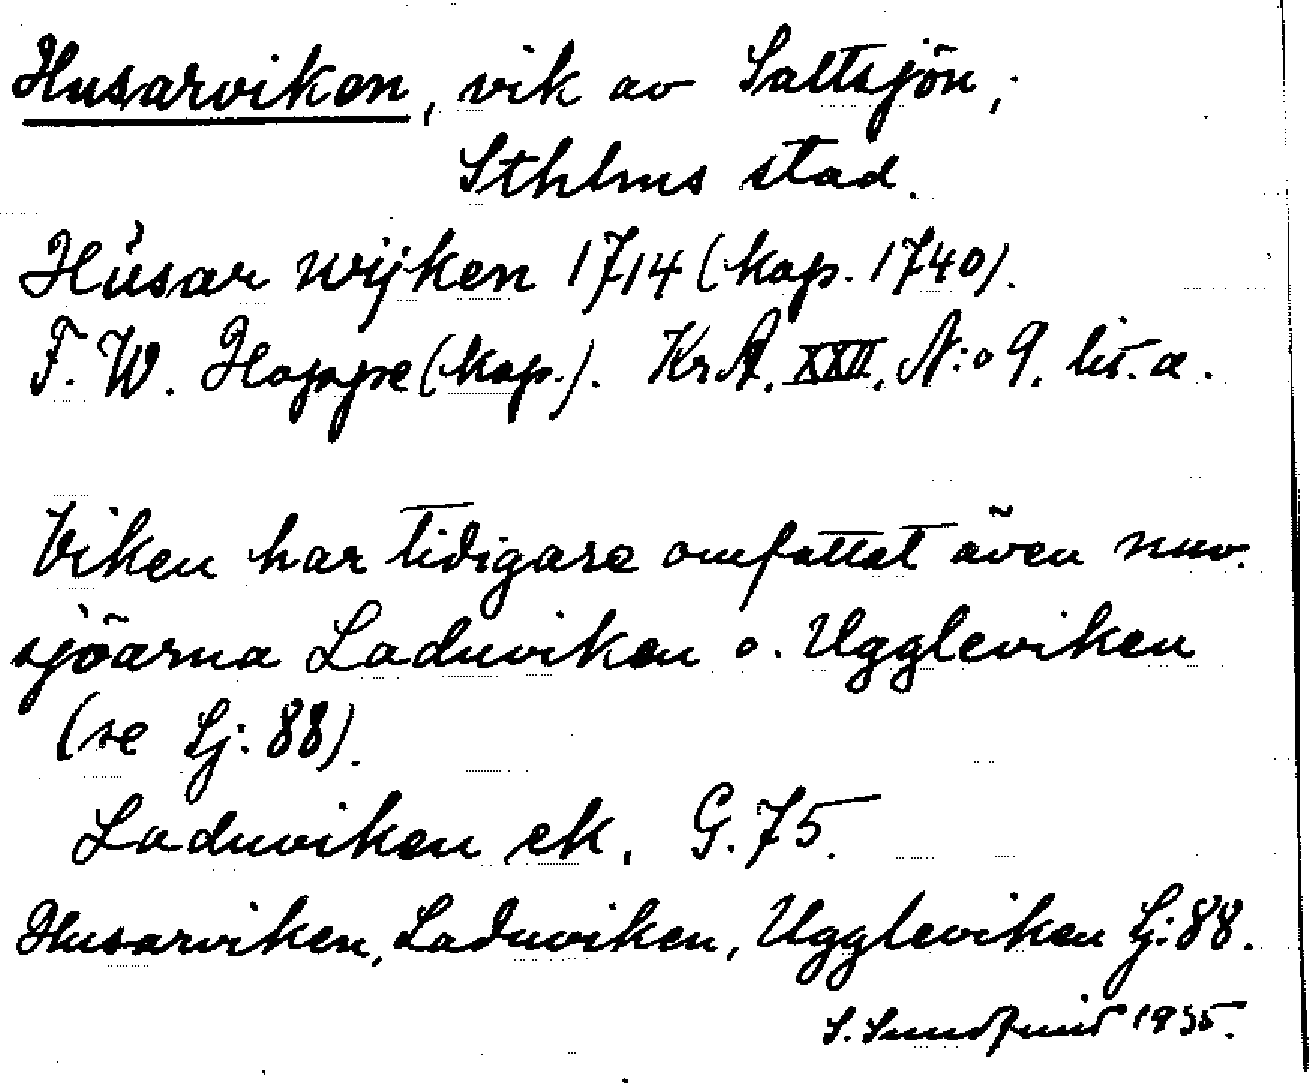 Husarviken, vik av Saltsjön,
Sthlms stad.
Hüsar wijken 1714 (kop. 1740).
F. W. Hoppe (kop.). KrA. XXII, N:o 9. lit. a.
Viken har tidigare omfattat även nuv.
sjöarna Laduviken o. Uggleviken
(se Lj: 88).
Laduviken ek. G. 75.
Husarviken, Laduviken, Uggleviken Lj: 88.
S. Sundquist 1935.